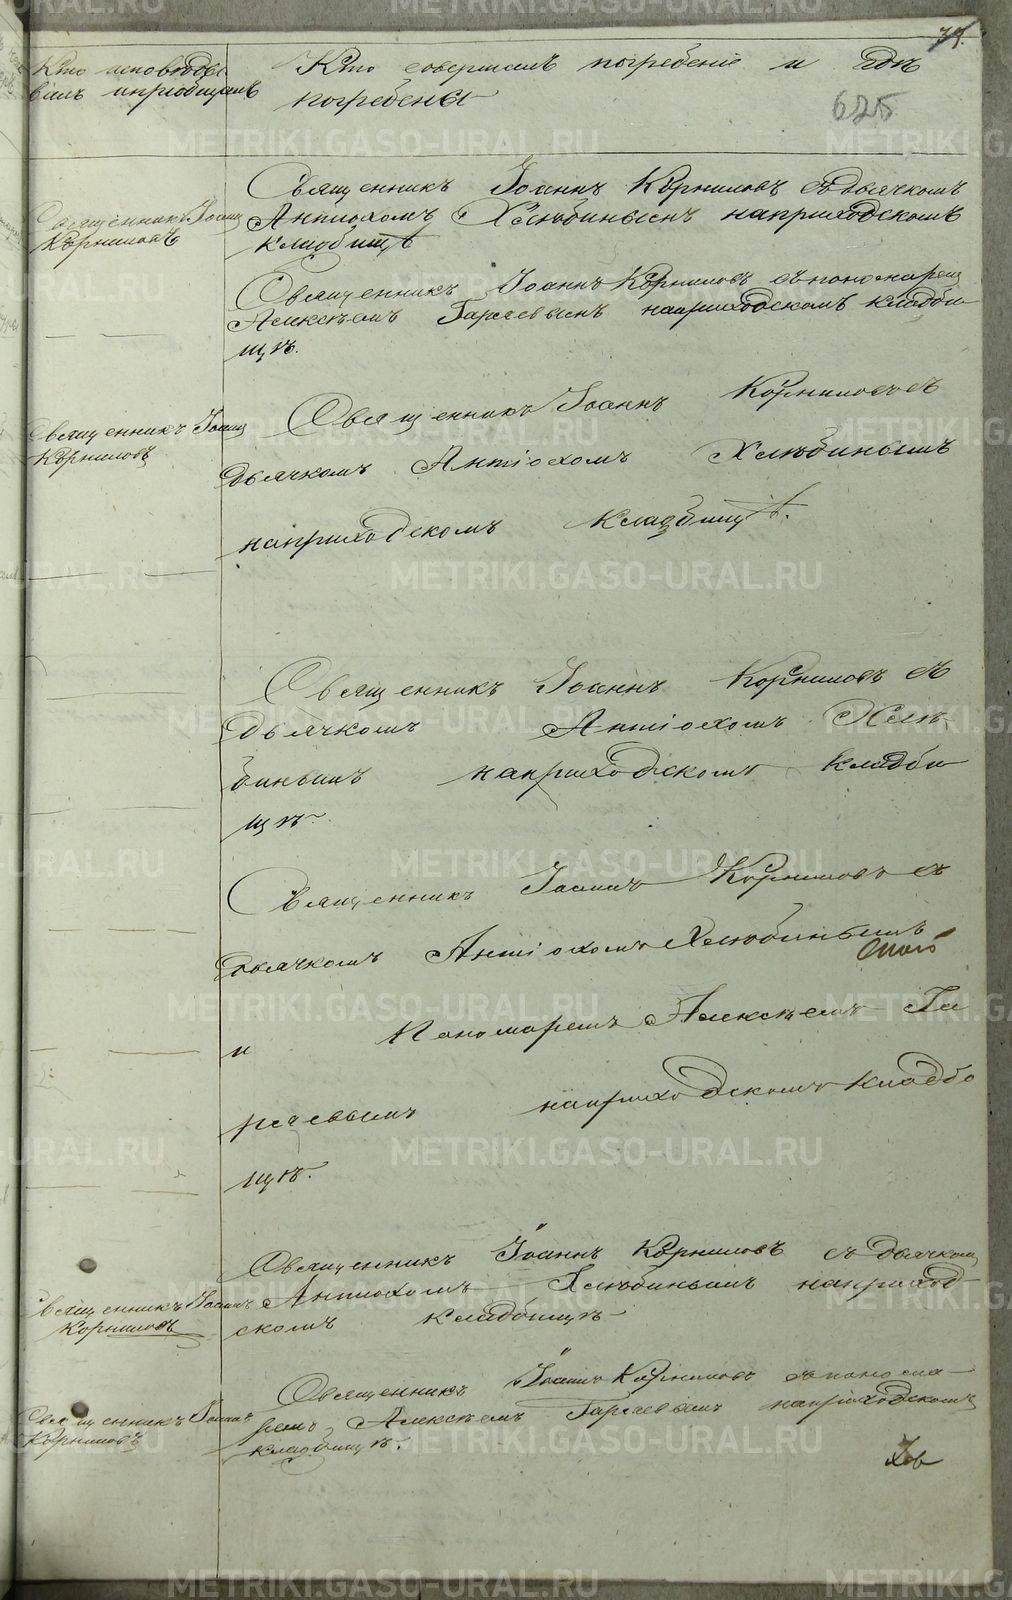 77.
625
Кто исповѣдо
валъ и пріобщалъ
Кто совершалъ погребеніе и гдѣ
погребены
Священникъ Іоаннъ
Корниловъ
Священникъ Іоаннъ Корниловъ съ дьячкомъ
Антіохомъ Хлѣбинымъ на приходскомъ
кладбищѣ
Священникъ Іоаннъ Корниловъ съ пономарем
Алексѣемъ Гаряевымъ на приходскомъ кладби
щѣ.
Священникъ Іоанн
Корниловъ
Священникъ Іоаннъ Корниловъ съ
дьячкомъ Антіохомъ Хлѣбинымъ
на приходскомъ кладбищѣ.
Священникъ Іоаннъ Корниловъ съ
дьячкомъ Антіохомъ Хлѣ-
бинымъ на приходскомъ кладби
щѣ.
Священникъ Іоаннъ Корниловъ съ
дьячкомъ Антіохомъ Хлѣбинымъ
и Пономаремъ Алексѣемъ Га
ряевымъ на приходскомъ кладбо
щѣ.
Священникъ Іоаннъ
Корниловъ
Священникъ Іоаннъ Корниловъ съ дьячком
Антіохомъ Хлѣбинымъ на приход-
скомъ кладбищѣ
Священникъ Іоаннъ
Корниловъ
Священникъ Іоаннъ Корниловъ съ понома-
ремъ Алексѣемъ Гаряевымъ на приходскомъ
кладбищѣ.
METRIKI.GASO-URAL.RU